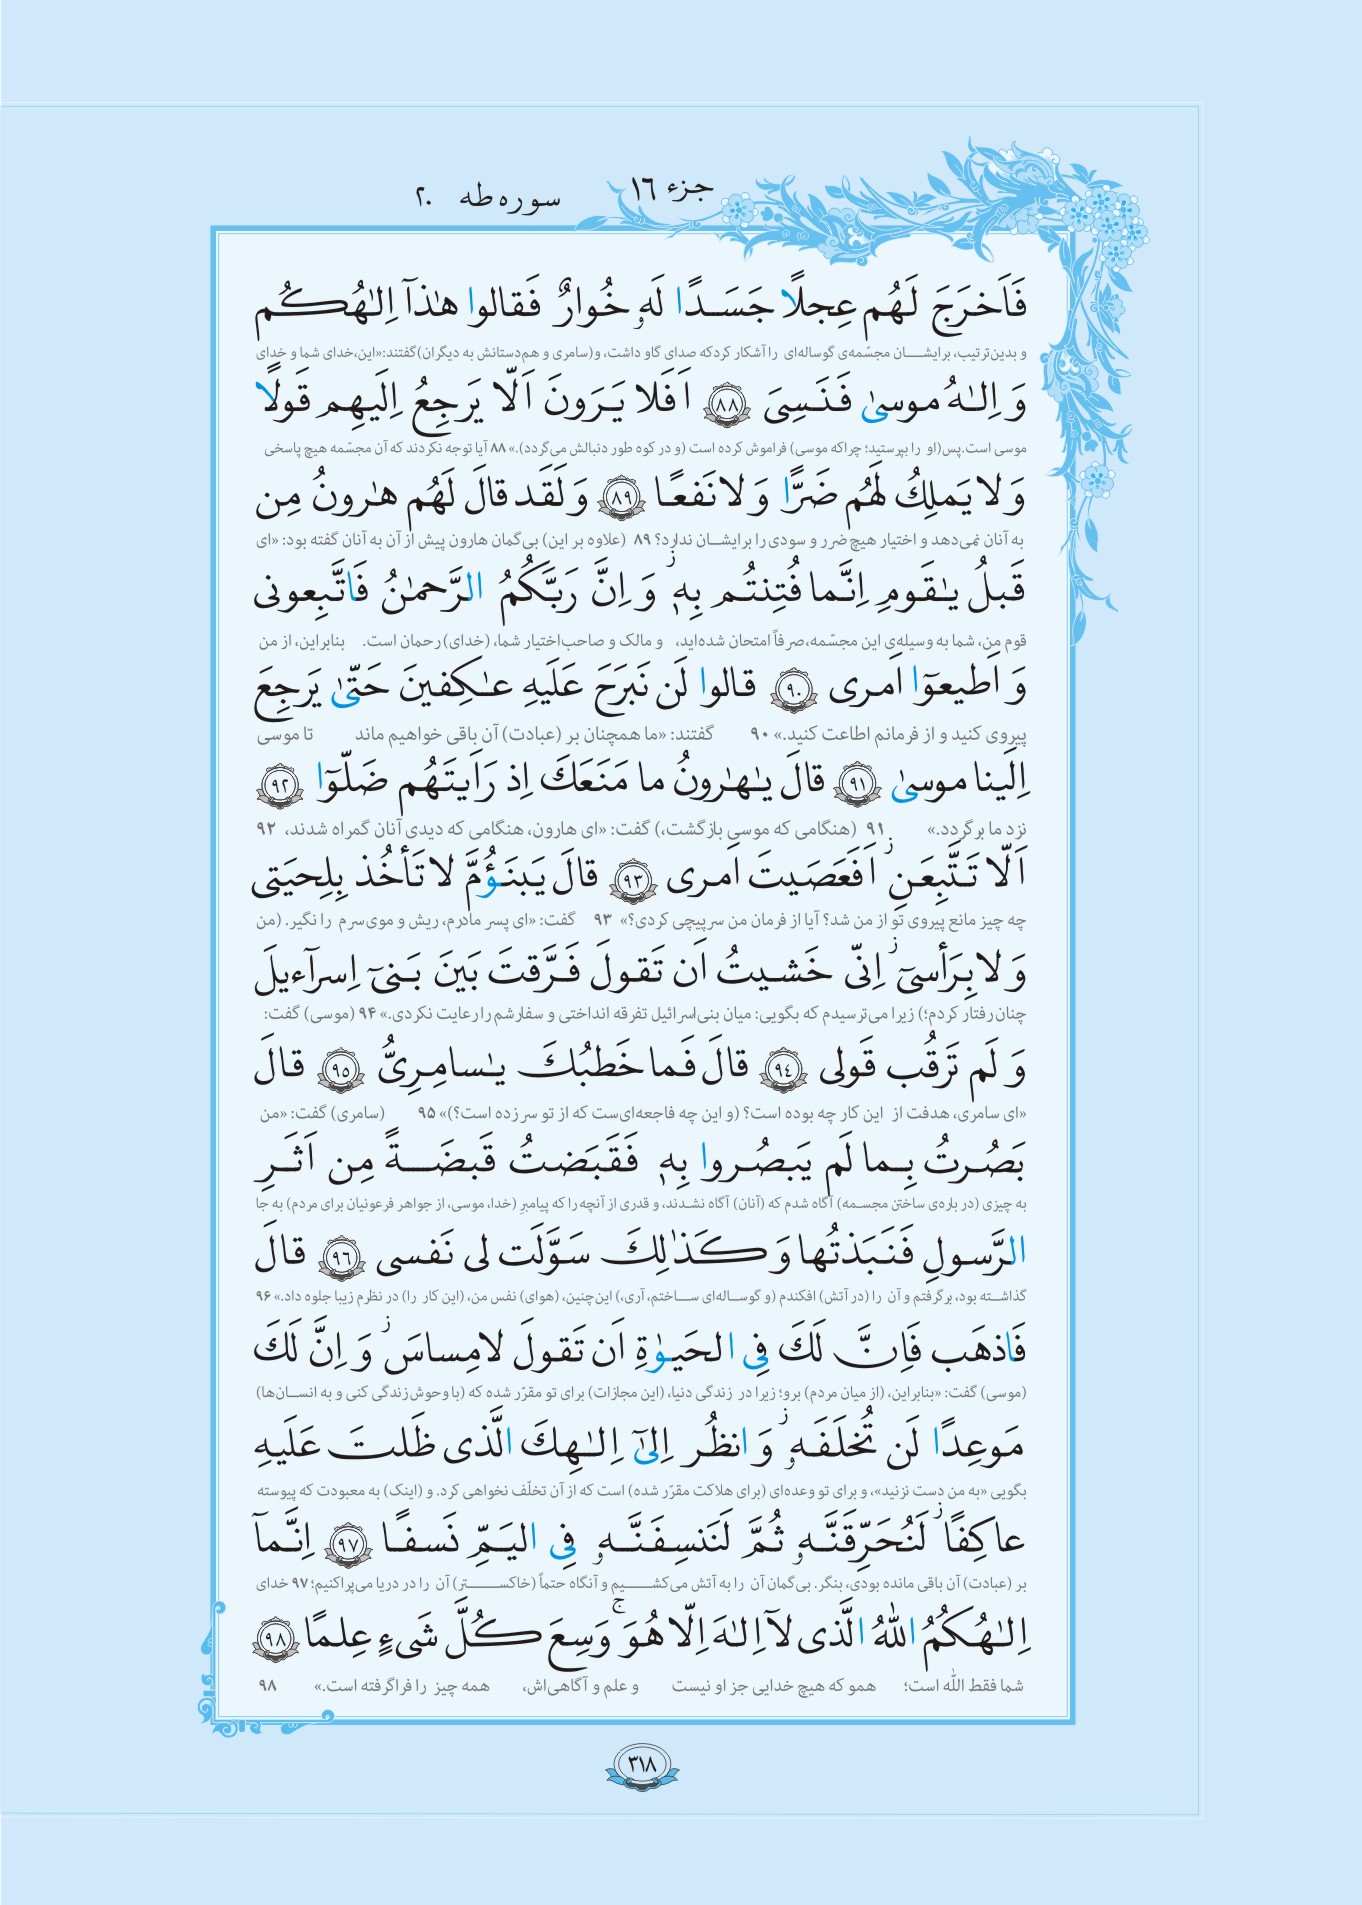 جزء ١٦
سوره طه ٢٠
فَاَخرَجَ لَهُم عِجلًا جَسَدًا لَهٗ خُوارٌ فَقالوا هٰذآ اِلٰهُكُم
و بدین‌ترتیب، برایشان مجسّمه‌ی گوساله‌ای را آشکار کرد که صدای گاو داشت، و (سامری و هم‌دستانش به دیگران) گفتند: «این، خدای شما و خدای
وَ اِلٰهُ موسىٰ فَنَسِىَ ٨٨ اَفَلا يَرَونَ اَلّا يَرجِعُ اِلَيهِم قَولًا
موسی است. پس (او را بپرستید؛ چراکه موسی) فراموش کرده است (و در کوه طور دنبالش می‌گردد).» ۸۸ آیا توجه نکردند که آن مجسّمه هیچ پاسخی
وَ لا يَملِكُ لَهُم ضَرًّا وَ لا نَفعًا ٨٩ وَ لَقَد قالَ لَهُم هٰرونُ مِن
به آنان نمی‌دهد و اختیار هیچ ضرر و سودی را برایشان ندارد؟ ۸۹ (علاوه بر این) بی‌گمان هارون پیش از آن به آنان گفته بود: «ای
قَبلُ يٰقَومِ اِنَّما فُتِنتُم بِهٖ ۖ وَ اِنَّ رَبَّكُمُ الرَّحمٰنُ فَاتَّبِعونى
قوم من، شما به وسیله‌ی این مجسّمه، صرفاً امتحان شده‌اید، و مالک و صاحب‌اختیار شما، (خدای) رحمان است. بنابراین، از من
وَ اَطيعوٓا اَمرى ٩٠ قالوا لَن نَبرَحَ عَلَيهِ عٰكِفينَ حَتّىٰ يَرجِعَ
پیروی کنید و از فرمانم اطاعت کنید.» ۹۰ گفتند: «ما همچنان بر (عبادت) آن باقی خواهیم ماند تا موسی
اِلَينا موسىٰ ٩١ قالَ يٰهٰرونُ ما مَنَعَكَ اِذ رَاَيتَهُم ضَلّوٓا ٩٢
نزد ما برگردد.» ۹۱ (هنگامی که موسی بازگشت،) گفت: «ای هارون، هنگامی که دیدی آنان گمراه شدند، ۹۲
اَلّا تَتَّبِعَنِ ۖ اَفَعَصَيتَ اَمرى ٩٣ قالَ يَبنَؤُمَّ لا تَأخُذ بِلِحيَتى
چه چیز مانع پیروی تو از من شد؟ آیا از فرمان من سرپیچی کردی؟» ۹۳ گفت: «ای پسر مادرم، ریش و موی سرم را نگیر. (من
وَ لا بِرَأسىٓ ۖ اِنّى خَشيتُ اَن تَقولَ فَرَّقتَ بَينَ بَنىٓ اِسرآءيلَ
چنان رفتار کردم؛) زیرا می‌ترسیدم که بگویی: میان بنی‌اسرائیل تفرقه انداختی و سفارشم را رعایت نکردی.» ۹۴ (موسی) گفت:
وَ لَم تَرقُب قَولى ٩٤ قالَ فَما خَطبُكَ يٰسامِرِىُّ ٩٥ قالَ
«ای سامری، هدفت از این کار چه بوده است؟ (و این چه فاجعه‌ای‌ست که از تو سر زده است؟)» ۹۵ (سامری) گفت: «من
بَصُرتُ بِما لَم يَبصُروا بِهٖ فَقَبَضتُ قَبضَةً مِن اَثَرِ
به چیزی (در باره‌ی ساختن مجسمه) آگاه شدم که (آنان) آگاه نشدند، و قدری از آنچه را که پیامبرِ (خدا، موسی، از جواهر فرعونیان برای مردم) به جا
الرَّسولِ فَنَبَذتُها وَ كَذٰلِكَ سَوَّلَت لى نَفسى ٩٦ قالَ
گذاشته بود، برگرفتم و آن را (در آتش) افکندم (و گوساله‌ای ساختم، آری،) این‌چنین، (هوای) نفس من، (این کار را) در نظرم زیبا جلوه داد.» ۹۶
فَاذهَب فَاِنَّ لَكَ فِى الحَيوٰةِ اَن تَقولَ لا مِساسَ ۖ وَ اِنَّ لَكَ
(موسی) گفت: «بنابراین، (از میان مردم) برو؛ زیرا در زندگی دنیا، (این مجازات) برای تو مقرّر شده که (با وحوش زندگی کنی و به انسان‌ها)
مَوعِدًا لَن تُخلَفَهٗ ۖ وَ انظُر اِلىٰٓ اِلٰهِكَ الَّذى ظَلتَ عَلَيهِ
بگویی «به من دست نزنید»، و برای تو وعده‌ای (برای هلاکت مقرّر شده) است که از آن تخلّف نخواهی کرد. و (اینک) به معبودت که پیوسته
عاكِفًا ۖ لَنُحَرِّقَنَّهٗ ثُمَّ لَنَنسِفَنَّهٗ فِى اليَمِّ نَسفًا ٩٧ اِنَّمآ
بر (عبادت) آن باقی مانده بودی، بنگر. بی‌گمان آن را به آتش می‌کشیم و آنگاه حتماً (خاکستر) آن را در دریا می‌پراکنیم؛ ۹۷ خدای
اِلٰهُكُمُ اللّٰهُ الَّذى لآ اِلٰهَ اِلّا هُوَ ۚ وَسِعَ كُلَّ شَىءٍ عِلمًا ٩٨
شما فقط الله است؛ همو که هیچ خدایی جز او نیست و علم و آگاهی‌اش، همه چیز را فراگرفته است.» ۹۸
٣١٨